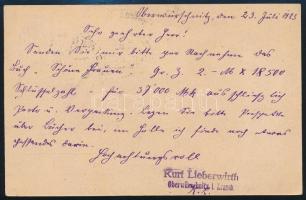 Oberwürschnitz, den 23. Juli 1923
Sehr geehrter Herr!
Senden Sie mir bitte per Nachnahme das
Buch „Schöne Frauen“ Gr. Z. 2.– M x 18500
Schlüsselzahl – für 37000 Mk ausschließlich
Porto u. Verpackung. Legen Sie bitte Prospekte
über Bücher bei, im Falle ich finde noch etwas
passendes darin.
Hochachtungsvoll
Kurt Lieberwirth
Oberwürschnitz i. Erzgeb.